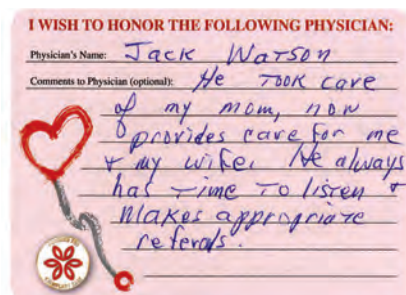 I WISH TO HONOR THE FOLLOWING PHYSICIAN:
Physician's Name: Jack Watson
Comments to Physician (optional): He took care
of my mom, now
provides care for me
+ my wife. He always
has time to listen +
makes appropriate
referals.